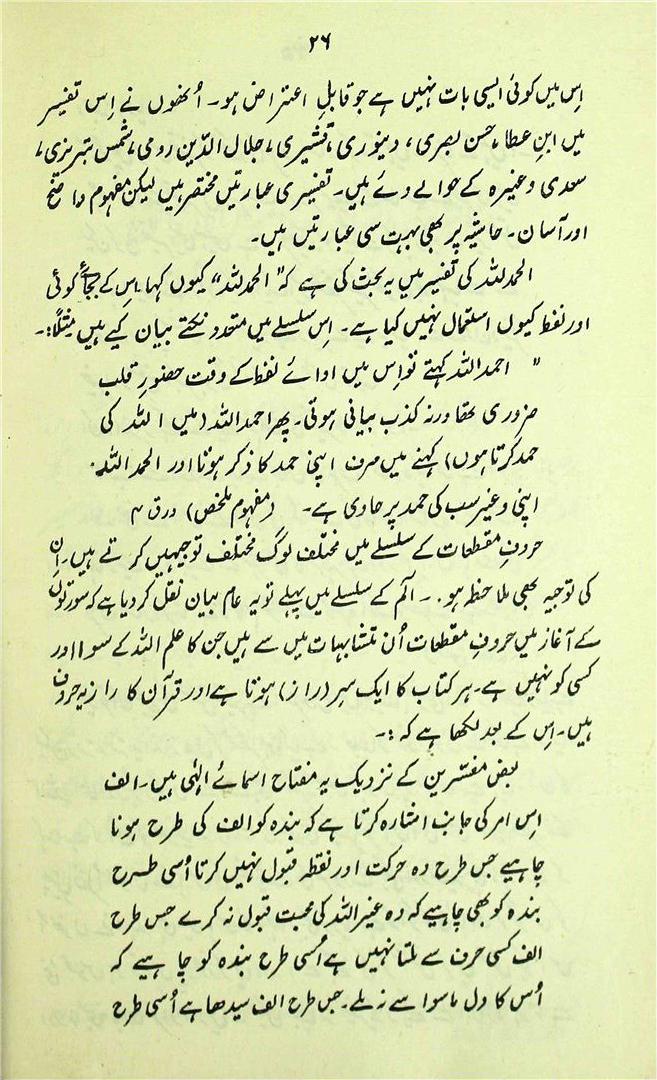 ۲۶
اِس میں کوئی ایسی بات نہیں ہے جو قابلِ اعتراض ہو۔ اُنھوں نے اِس تفسیر
میں ابنِ عطا، حسن بصری، دینوری، قشیری، جلال الدّین رومی، شمس تبریزی،
سعدی وغیرہ کے حوالے دئے ہیں۔ تفسیری عبارتیں مختصر ہیں لیکن مفہوم واضح
اور آسان۔ حاشیہ پر بھی بہت سی عبارتیں ہیں۔
الحمدللہ کی تفسیر میں یہ بحث کی ہے کہ "الحمدللہ" کیوں کہا۔ اِس کے بجائے کوئی
اور لفظ کیوں استعمال نہیں کیا ہے۔ اس سلسلے میں متعدد نکتے بیان کیے ہیں مثلاً:۔
" احمداللہ کہتے تو اِس میں ادائے لفظ کے وقت حضورِ قلب
ضروری تھا ورنہ کذب بیانی ہوتی۔ پھر احمداللہ (میں اللہ کی
حمد کرتا ہوں) کہنے میں صرف اپنی حمد کا ذکر ہوتا اور الحمدللہ
اپنی وغیر سب کی حمد پر حاوی ہے۔ (مفہوم ملخص) ورق ۴
حروفِ مقطعات کے سلسلے میں مختلف لوگ مختلف توجیہیں کرتے ہیں۔ اِن
کی توجیہ بھی ملاحظہ ہو۔ ۔ الٓم کے سلسلے میں پہلے تو یہ عام بیان نقل کر دیا ہے کہ سورتوں
کے آغاز میں حروفِ مقطعات اُن متشابہات میں سے ہیں جن کا علم اللہ کے سوا اور
کسی کو نہیں ہے۔ ہر کتاب کا ایک سِر (راز) ہوتا ہے اور قرآن کا راز یہ حروف
ہیں۔ اِس کے بعد لکھا ہے کہ:۔
بعض مفسّرین کے نزدیک یہ مفتاح اسمائے الٰہی ہیں۔ الف
اِس امر کی جانب اشارہ کرتا ہے کہ بندہ کو الف کی طرح ہونا
چاہیے جس طرح وہ حرکت اور نقطہ قبول نہیں کرتا اُسی طرح
بندہ کو بھی چاہیے کہ وہ غیراللہ کی محبت قبول نہ کرے جس طرح
الف کسی حرف سے ملتا نہیں ہے اُسی طرح بندہ کو چاہیے کہ
اُس کا دل ماسوا سے نہ ملے۔ جس طرح الف سیدھا ہے اُسی طرح